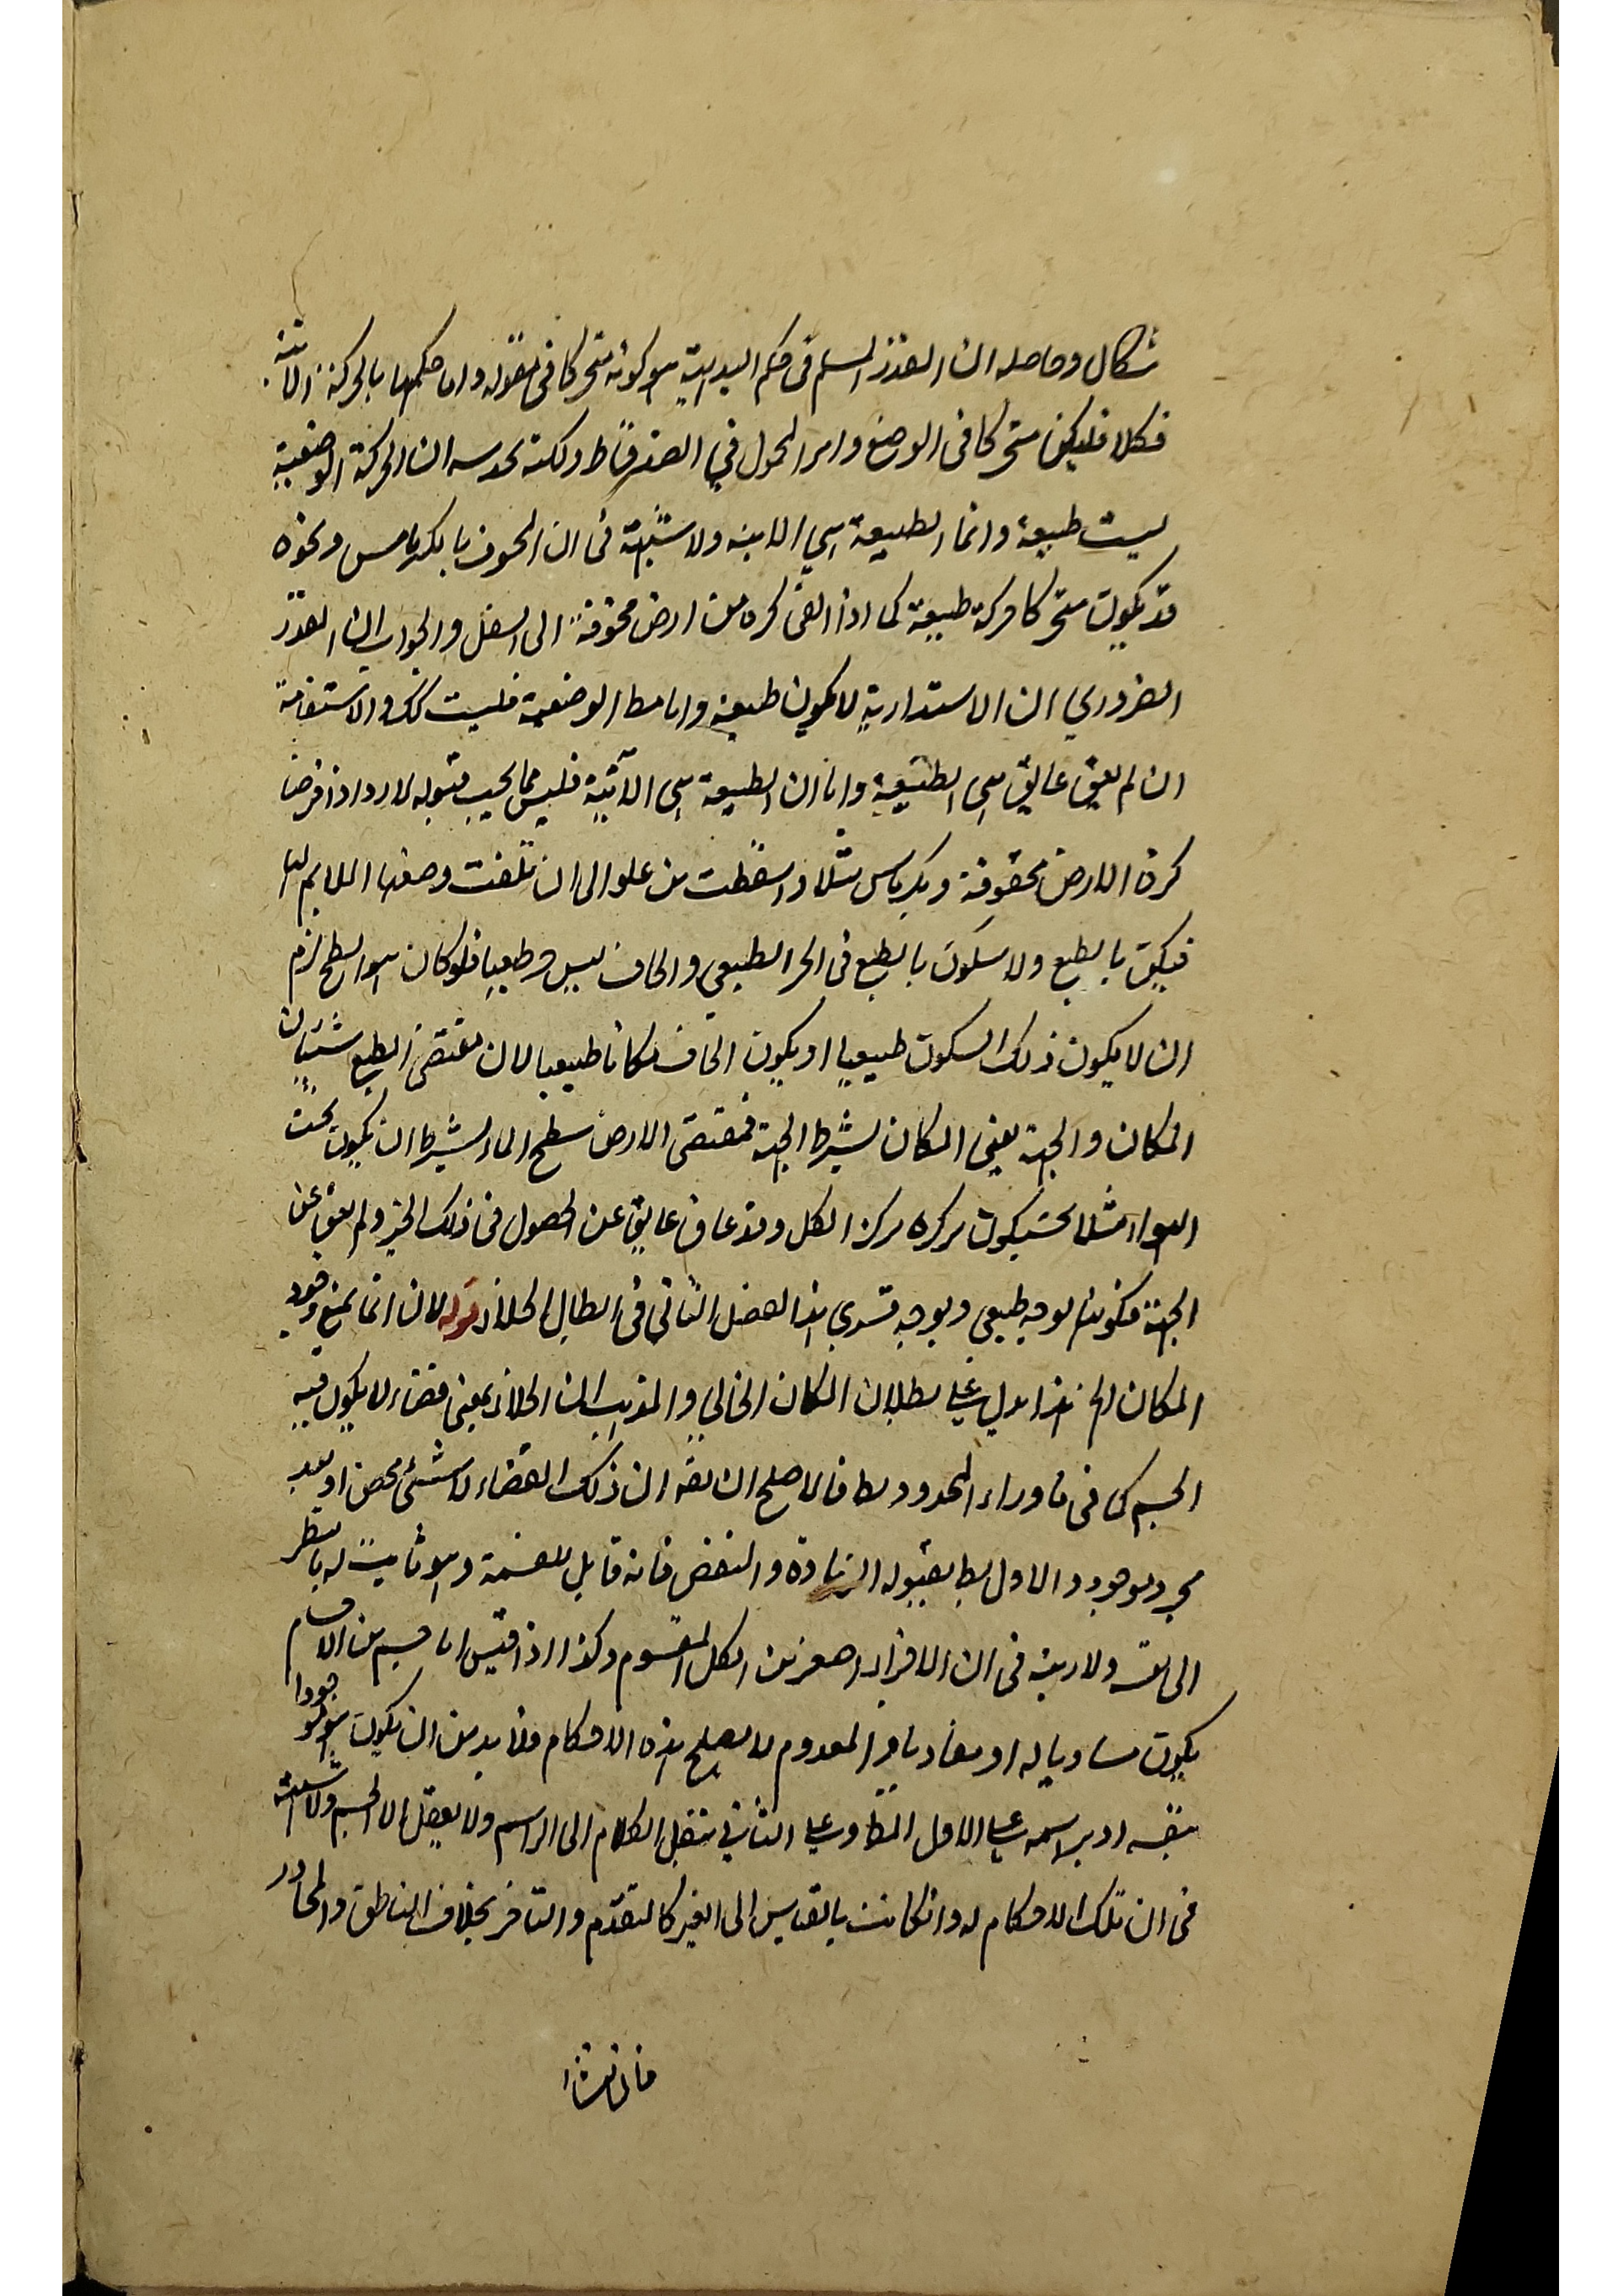 شكال وحاصله ان القدر المسلم فى حكم البديهة هو كونه متحركا فى مقوله واما حكمها بالحركة الاينية
فكلا فليكن متحركا فى الوضع وامر المحمول فى الصغرى ولكنه بحدسه ان الحركة الوضعية
ليست طبيعة وانما الطبيعة هى الاينيه ولا شبهة فى ان المحفوف بالكرباس ونحوه
قد يكون متحركا حركة طبيعة كما اذا القى كره من ارض محفوفة الى السفل والجواب ان القدر
الضروري ان الاستدارية لا يكون طبعية واما مط الوضعية فليست كك والاستقامة
ان لم يعق عايق هى الطبيعية واما ان الطبيعة هى الآنية فليس مما يجب قبوله لا رد اذا فرضنا
كرة الارض محفوفة وبكرباس مثلا واسقطت من علو الى ان تلفت وصفها الملايم لها
فيكن بالطبع ولا سكون بالطبع فى الحز الطبيعي والحاف ليس طبعيا فلو كان هو السطح لزم
ان لا يكون ذلك السكون طبيعيا او يكون الحاف مكانا طبيعيا لان مقتضى الطبع شيئان
المكان والجهة يعنى المكان بشرط الجهة فمقتضى الارض سطح الماء بشرط ان يكون تحت
الهواء مثلا بحيث يكون مركزه مركز الكل وقد عاق عايق عن الحصول فى ذلك الحيز ولم يعق عن
الجهة فكونه بوجه طبيعي وبوجه قسري هذا الفصل الثاني فى ابطال الخلاء قوله لان انما يمنع وجود
المكان الخ هذا يدل على بطلان المكان الخالي والمذهب ان الخلاء يعنى فضاء لا يكون فيه
الجسم كما فى ما وراء المحدود بط فالاصلح ان يقه ان ذلك الفضاء لا شئ محض او بعد
مجرد موجود والاول بط لقبوله الزيادة والنقض فانه قابل للقسمة وهو ثابت له بالنظر
الى نفسه ولا ريبة فى ان الافراد اصغر من الكل المقسوم وكذا اذا قيس اما قسيم من الاقسام
يكون مساويا له او مفاديا والمعدوم لا يصلح لهذه الاحكام فلا بد من ان يكون هو موجودا
بنفسه او براسمه على الاول المط وعلى الثاني ننقل الكلام الى الراسم ولا يعقل الا الجسم ولا شبهة
فى ان تلك الاحكام له وانكانت بالقياس الى الغير كالتقدم والتاخر بخلاف الناطق والمحاور